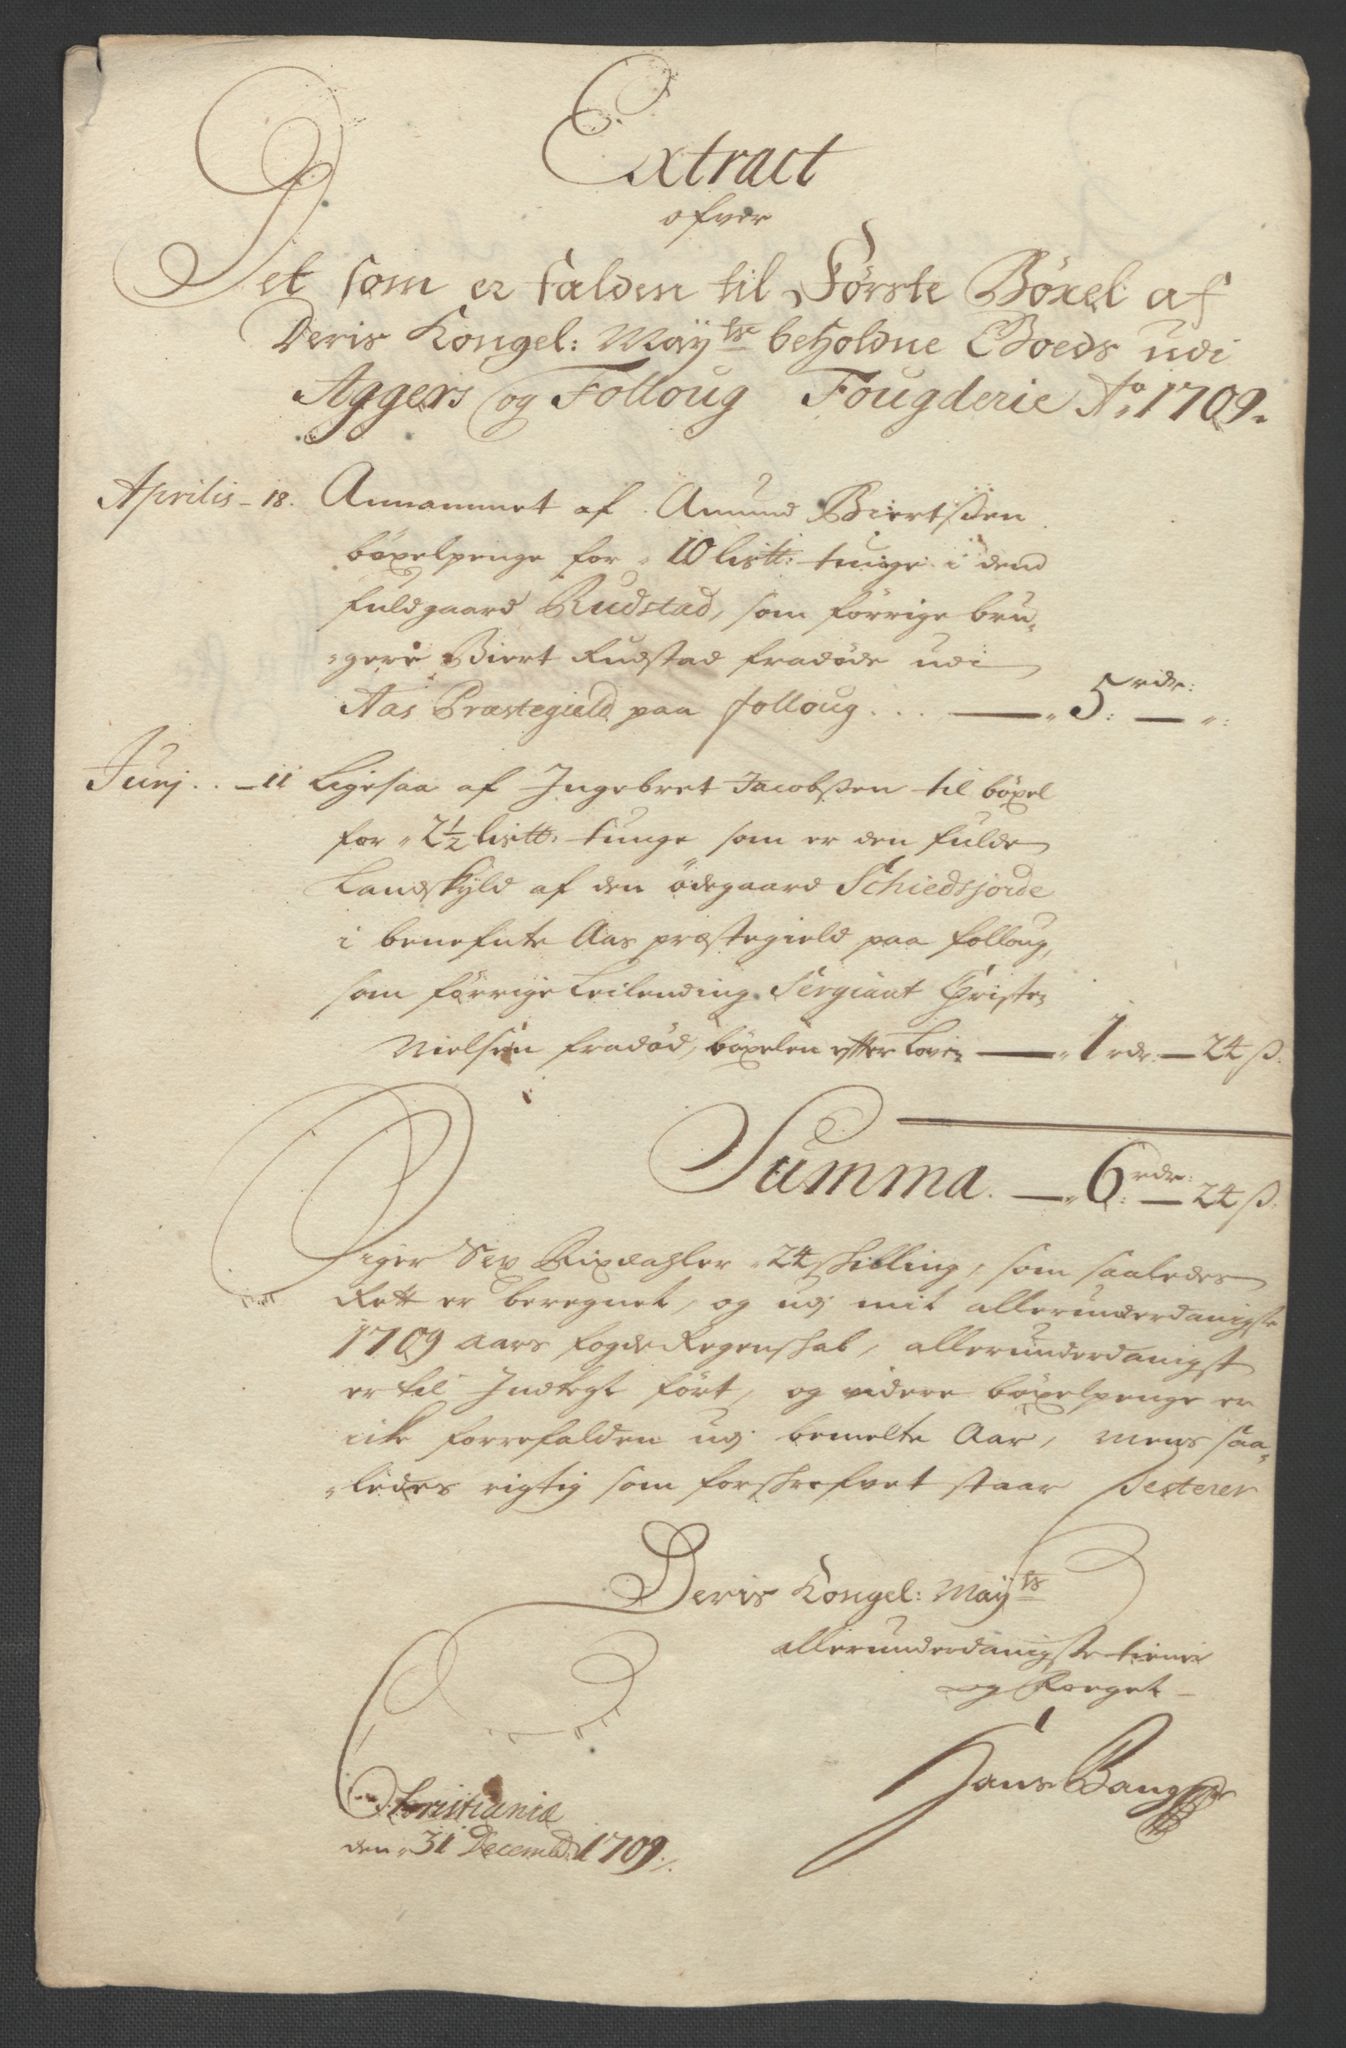 Extract
ofver
Det som er falden til Første Bøxel af
Deris Kongel: May:ts beholdne Goeds udi
Aggers og Folloug Fougderie Ao 1709.
Aprilis – 18. Annammet af Amund Biertsen
bøxelpenge for 10 lis℔: tunge i dend
fuldgaard Rudstad, som forrige bru-
gere Biert Rudstad fradøde udi
Aas Præstegield paa folloug . . . — 5 rdr: — „:
Junj . . – 11 Ligesaa af Ingebret Jacobssen til bøxel
for 2½ lis℔: tunge som er den fulde
Landskyld af den ødegaard Schiedsjorde
i benefnte Aas præstegield paa folloug,
som forrige Leilending Sergiant Christen
Nielsen fradød, bøxelen efter Loven — 1 rdr: — 24 ß.
Summa. — 6 rdr: — 24 ß.
Siger Sex Rixdahler 24 skilling, som saaledes
Rett er beregnet, og udj mit allerunderdanigste
1709 aars fogde Regenskab, allerunderdanigst
er til Indtegt ført, og videre bøxelpenge er
icke forrefalden udj bemelte Aar, mens saa-
ledes rigtig som forskrefvet staar Testerer
Deris Kongel: May:ts
allerunderdanigste tiener
og Foeget
Hans Bang
Christiania
den 31 Decemb: 1709.